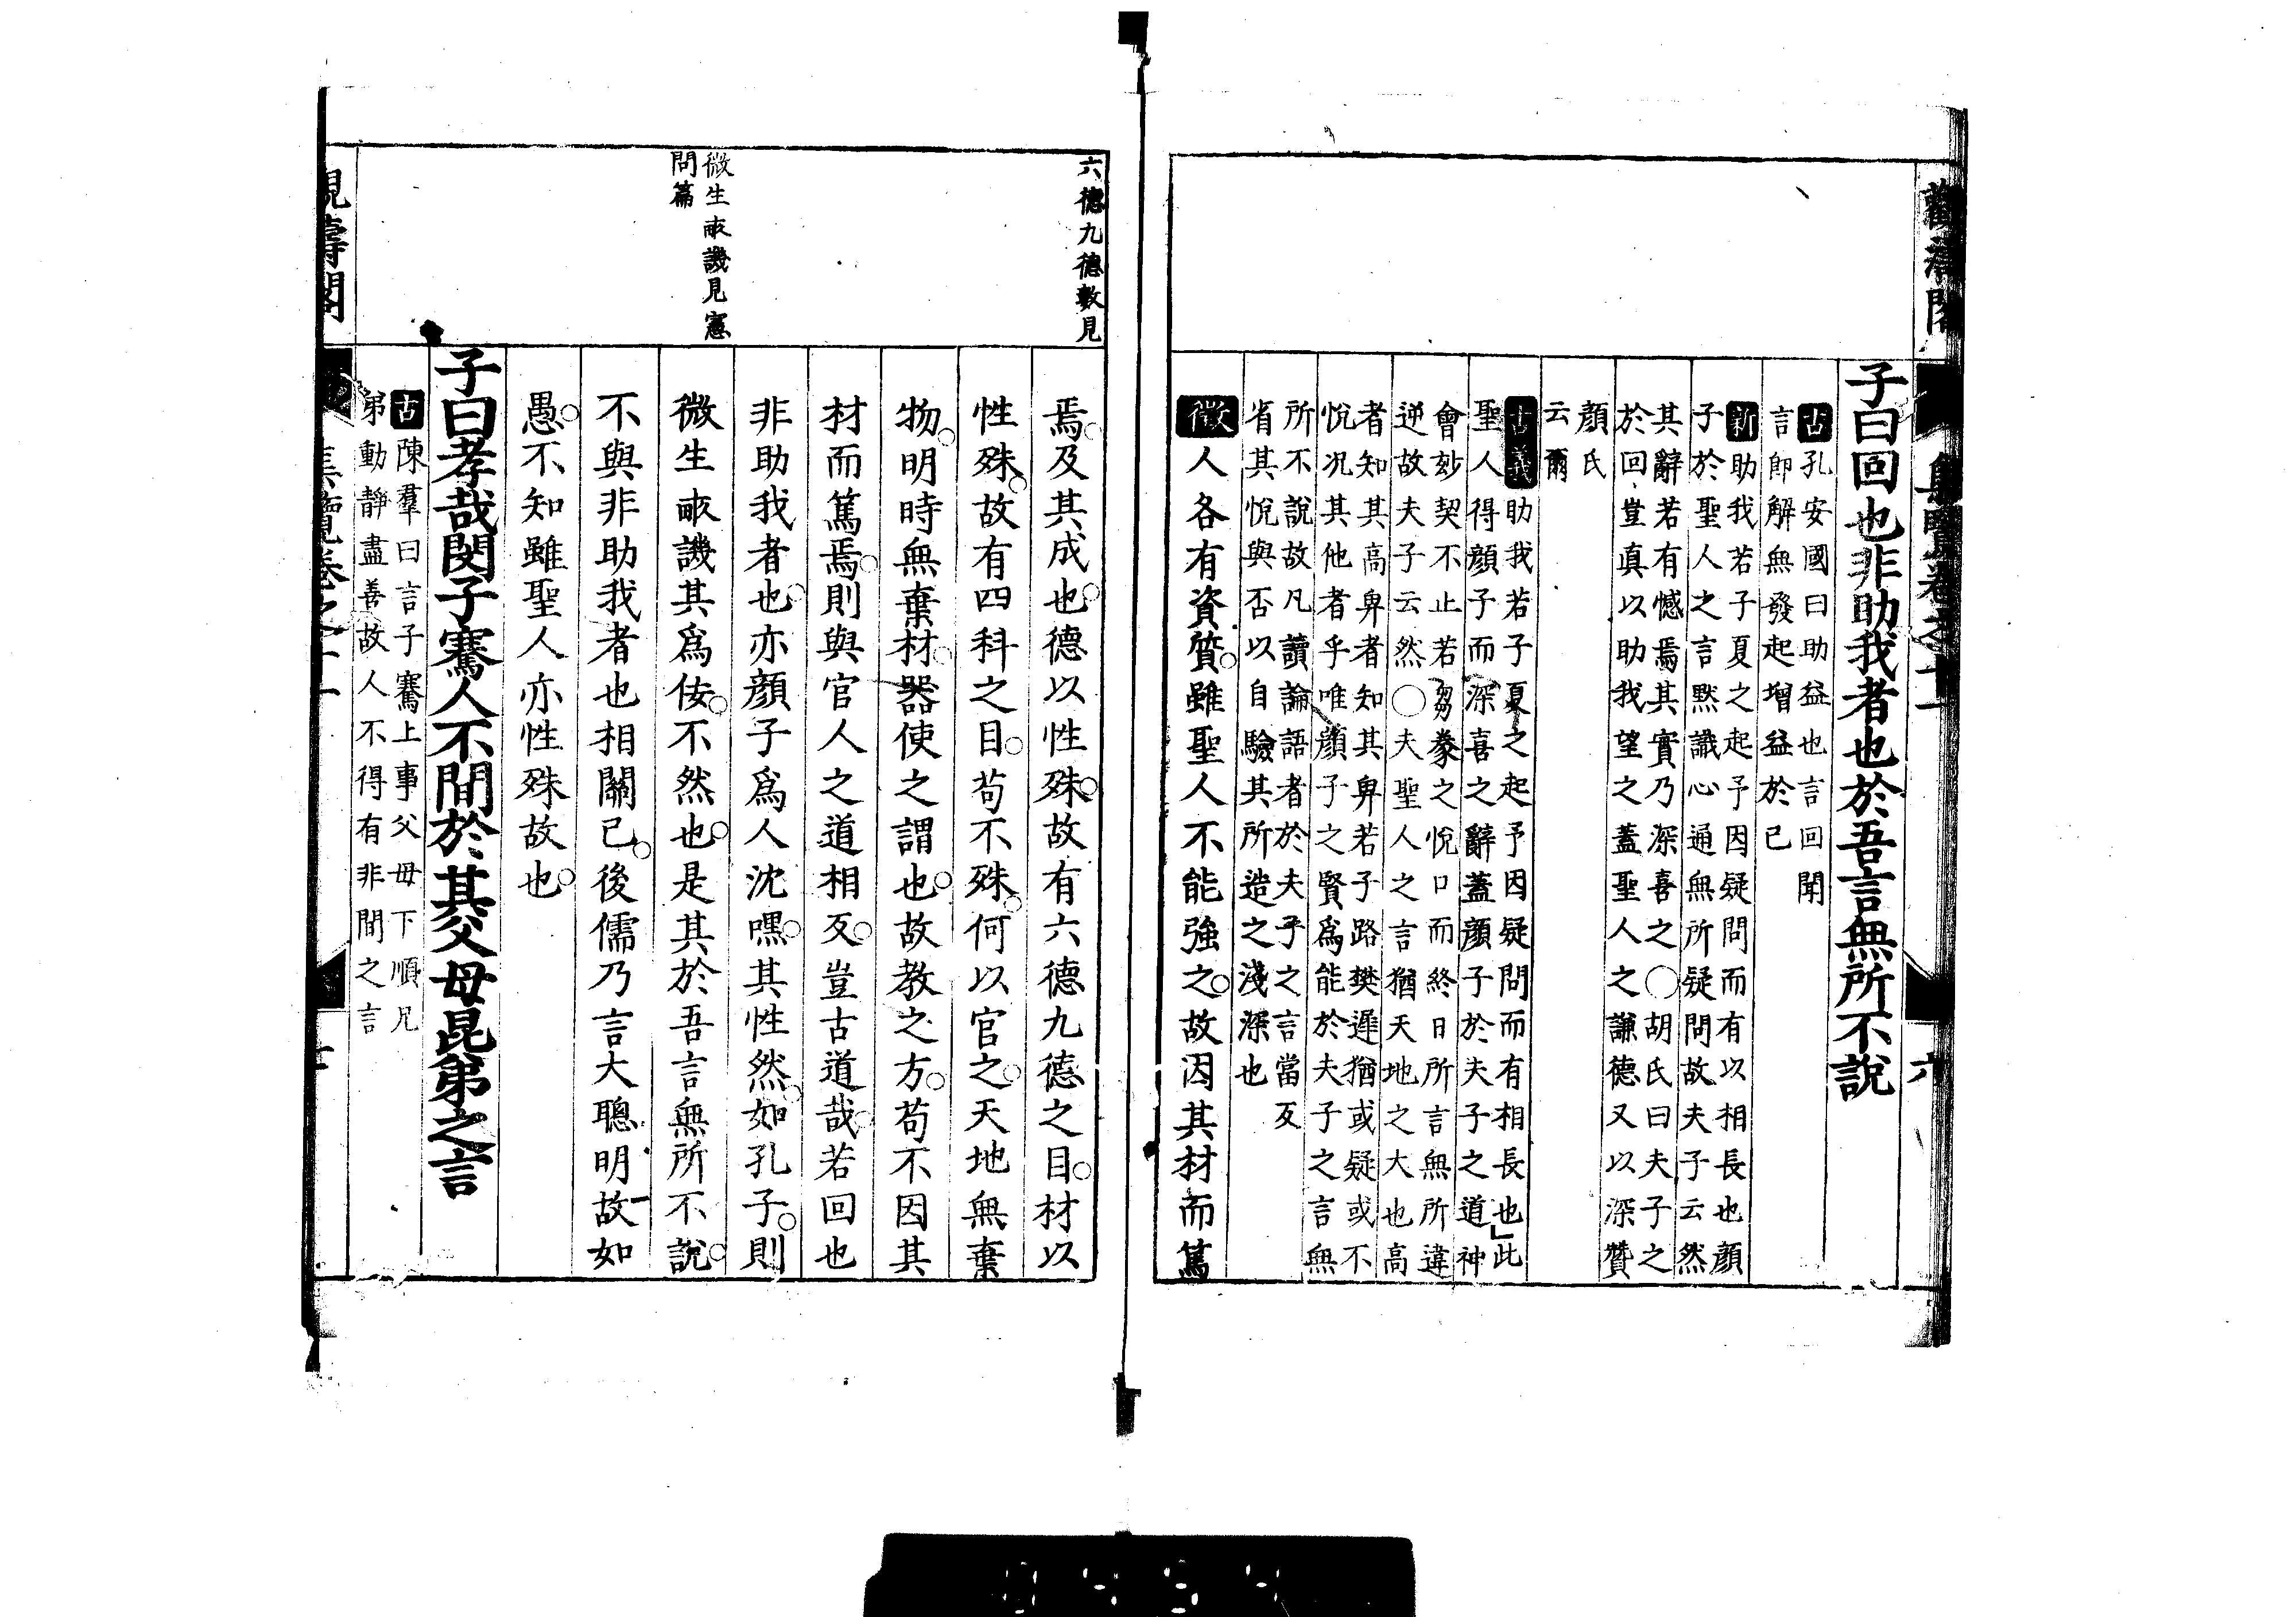 子曰回也非助我者也於吾言無所不說
古孔安國曰助益也言回聞
言即解無發起增益於己
新助我若子夏之起予因疑問而有以相長也顏
子於聖人之言默識心通無所疑問故夫子云然
其辭若有憾焉其實乃深喜之〇胡氏曰夫子之
於回豈真以助我望之蓋聖人之謙德又以深贊
顏氏
云爾
古義助我若子夏之起予因疑問而有相長也」此
聖人得顏子而深喜之辭蓋顏子於夫子之道神
會妙契不止若芻豢之悅口而終日所言無所違
逆故夫子云然〇夫聖人之言猶天地之大也高
者知其高卑者知其卑若子路樊遲猶或疑或不
悅况其他者乎唯顏子之賢為能於夫子之言無
所不說故凡讀論語者於夫子之言當反
省其悅與否以自驗其所造之淺深也
徵人各有資質雖聖人不能強之故因其材而篤
六德九德數見
焉及其成也德以性殊故有六德九德之目材以
性殊故有四科之目苟不殊何以官之天地無棄
物明時無棄材器使之謂也故教之方苟不因其
材而篤焉則與官人之道相反豈古道哉若回也
非助我者也亦顏子為人沈嘿其性然如孔子則
微生畝譏見憲
問篇
微生畝譏其爲佞不然也是其於吾言無所不說
不與非助我者也相關已後儒乃言大聰明故如
愚不知雖聖人亦性殊故也
子曰孝哉閔子騫人不間於其父母昆弟之言
古陳羣曰言子騫上事父母下順兄
弟動靜盡善故人不得有非間之言